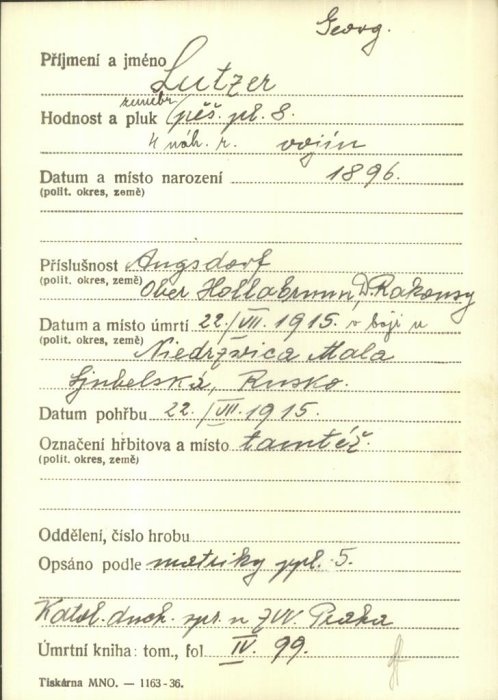 Georg.
Příjmení a jméno Lutzer
Hodnost a pluk pěš. pl. 8.
4 náh. r. vojín
Datum a místo narození 1896.
(polit. okres, země)
Příslušnost Augsdorf
(polit. okres, země) Ober Hollabrunn, D. Rakousy
Datum a místo úmrtí 22./VII. 1915. v boji u
(polit. okres, země) Niedrzwica Mala
Ljubelská, Rusko.
Datum pohřbu 22./VII. 1915.
Označení hřbitova a místo tamtéž.
(polit. okres, země)
Oddělení, číslo hrobu
Opsáno podle matriky ppl. 5.
Katol. duch. spr. u ZVV. Praha
Úmrtní kniha: tom., fol. IV. 99.
Tiskárna MNO. — 1163-36.